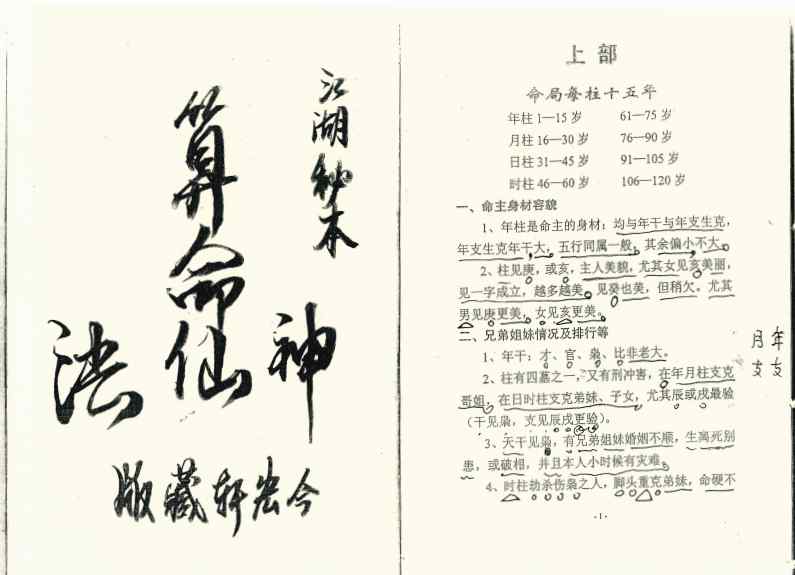 江湖秘本
算命仙
神法
今宏轩藏版
上部
命局每柱十五年
年柱1—15岁 61—75岁
月柱16—30岁 76—90岁
日柱31—45岁 91—105岁
时柱46—60岁 106—120岁
一、命主身材容貌
1、年柱是命主的身材；均与年干与年支生克，
年支生克年干大，五行同属一般，其余偏小不大。
2、柱见庚，或亥，主人美貌，尤其女见亥美丽，
见一字成立，越多越美。见癸也美，但稍欠。尤其
男见庚更美，女见亥更美。
二、兄弟姐妹情况及排行等
1、年干：才、官、枭、比非老大。
2、柱有四墓之一，又有刑冲害，在年月柱支克
哥姐，在日时柱支克弟妹、子女，尤其辰或戌最验
（干见枭，支见辰戌更验）。
3、天干见枭，有兄弟姐妹婚姻不顺，生离死别
患，或破相，并且本人小时候有灾难。
4、时柱劫杀伤枭之人，脚头重克弟妹，命硬不
·1·
年支
月支